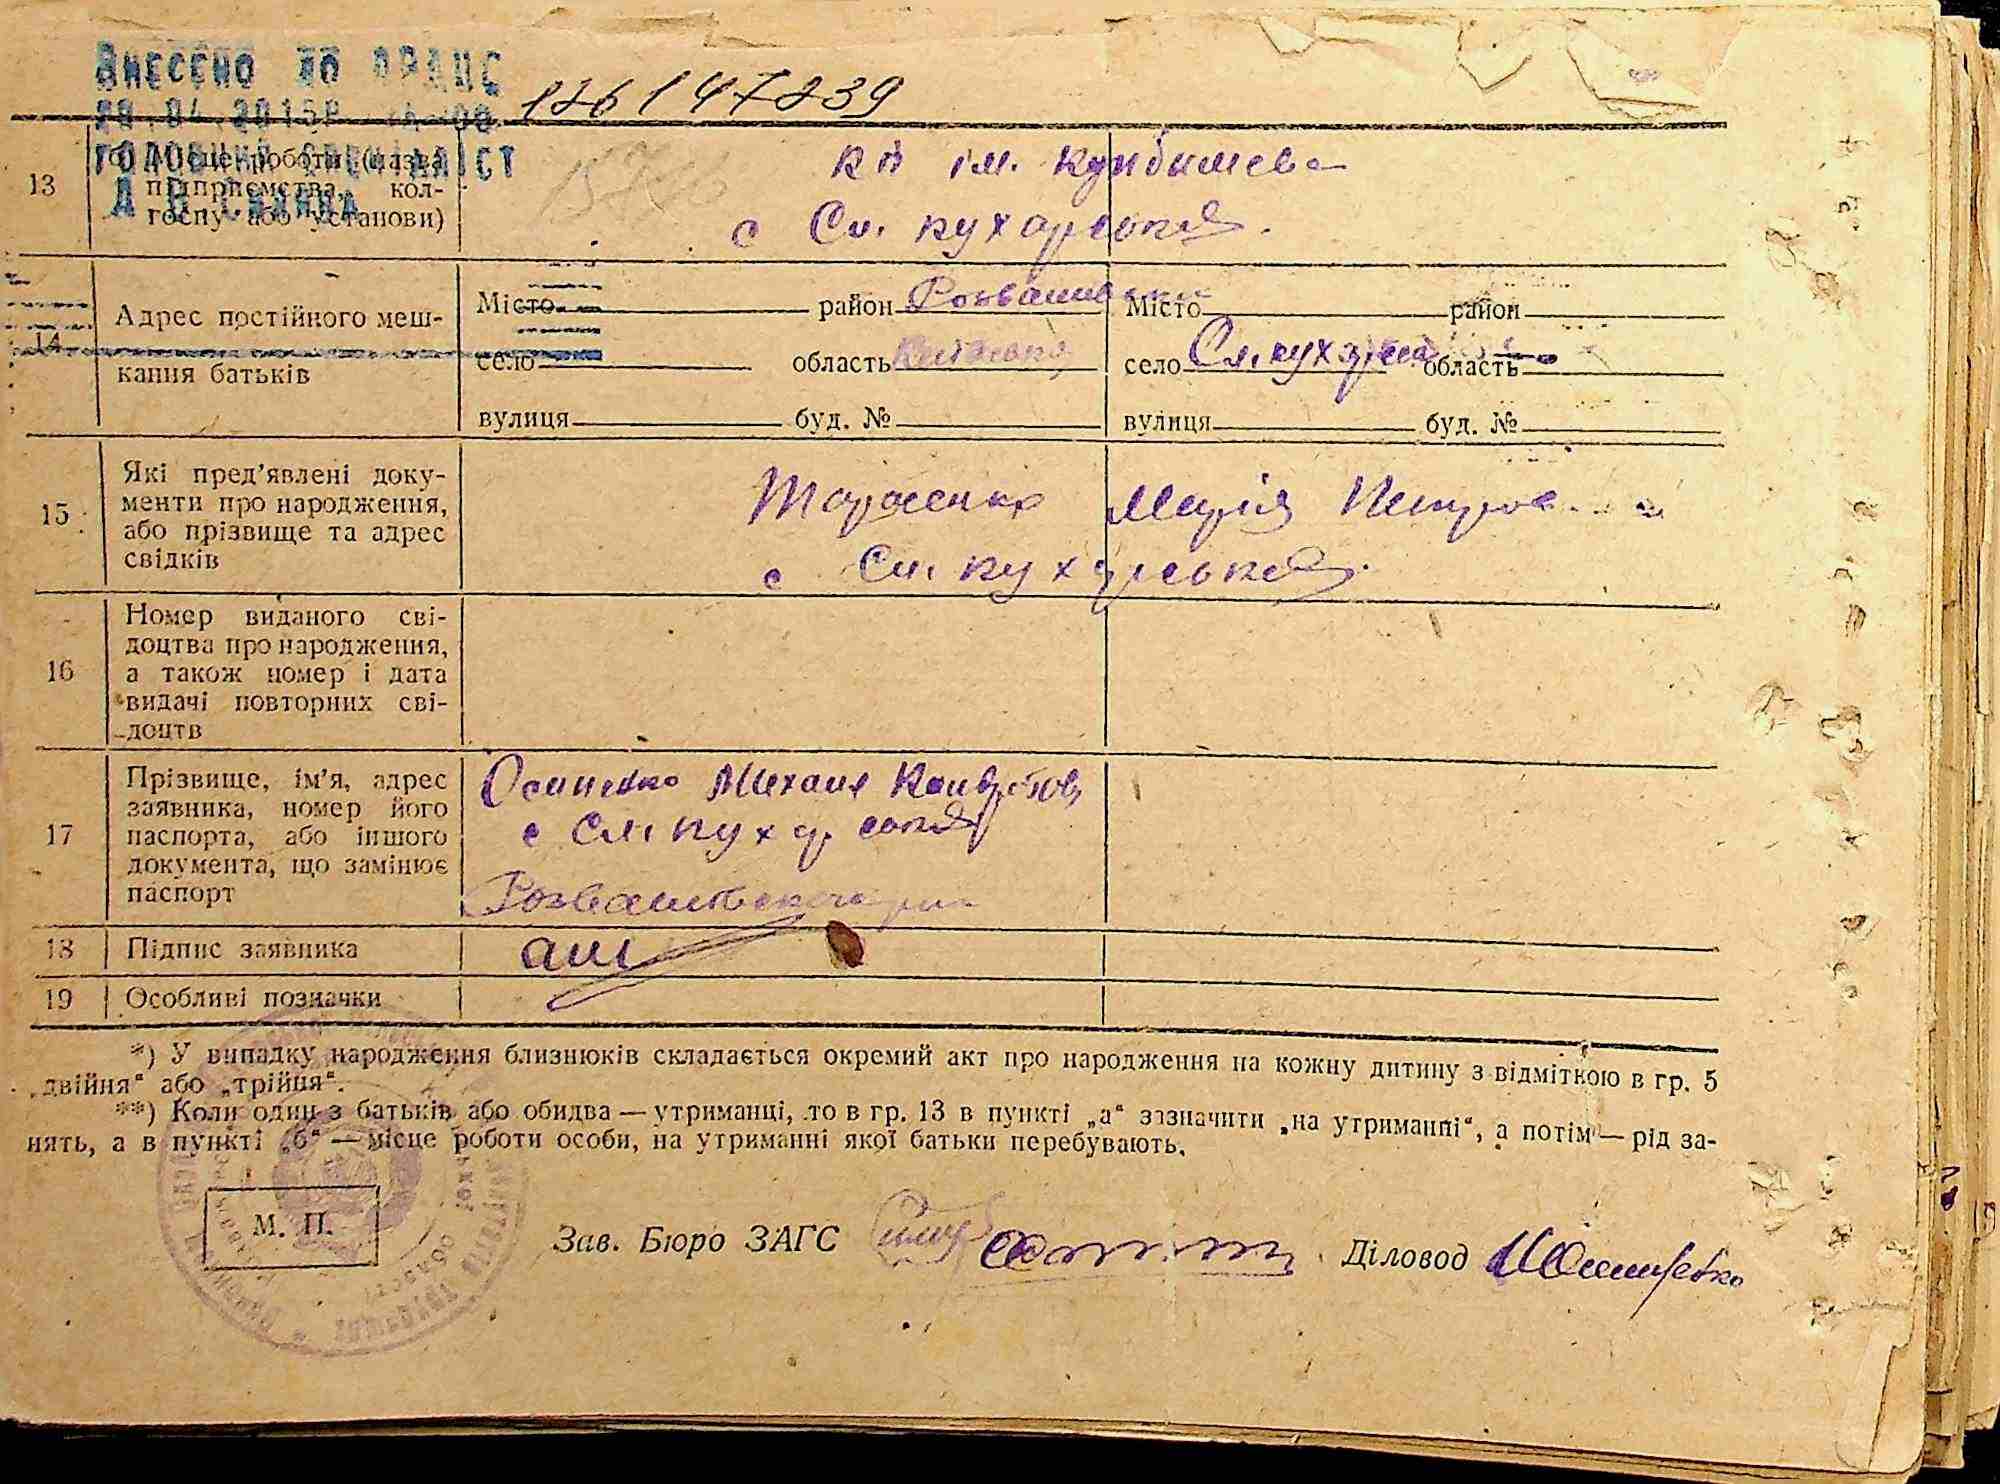 Внесено до ДРАЦС
126147239
28.04.2015р
13
б) Місце роботи (назва
підприємства, кол-
госпу або установи)
головний спеціаліст
кп ім. Куйбишева
с Сл. кухарська
14
Адрес постійного меш-
кання батьків
Місто район Розваживськ
село область Київська
вулиця буд. №
Місто район
село Сл. кухарська область
вулиця буд. №
15
Які пред'явлені доку-
менти про народження,
або прізвище та адрес
свідків
Тарасенко Марія Петров
с Сл. кухарська
16
Номер виданого сві-
доцтва про народження,
а також номер і дата
видачі повторних сві-
доцтв
17
Прізвище, ім'я, адрес
заявника, номер його
паспорта, або іншого
документа, що замінює
паспорт
Осипенко Михаил
с Сл. кухарська
18
Підпис заявника
19
Особливі позначки
*) У випадку народження близнюків складається окремий акт про народження на кожну дитину з відміткою в гр. 5
„двійня“ або „трійня“.
**) Коли один з батьків або обидва — утриманці, то в гр. 13 в пункті „а“ зазначити „на утриманні“, а потім — рід за-
нять, а в пункті „б“ — місце роботи особи, на утриманні якої батьки перебувають.
М. П.
Зав. Бюро ЗАГС
Діловод